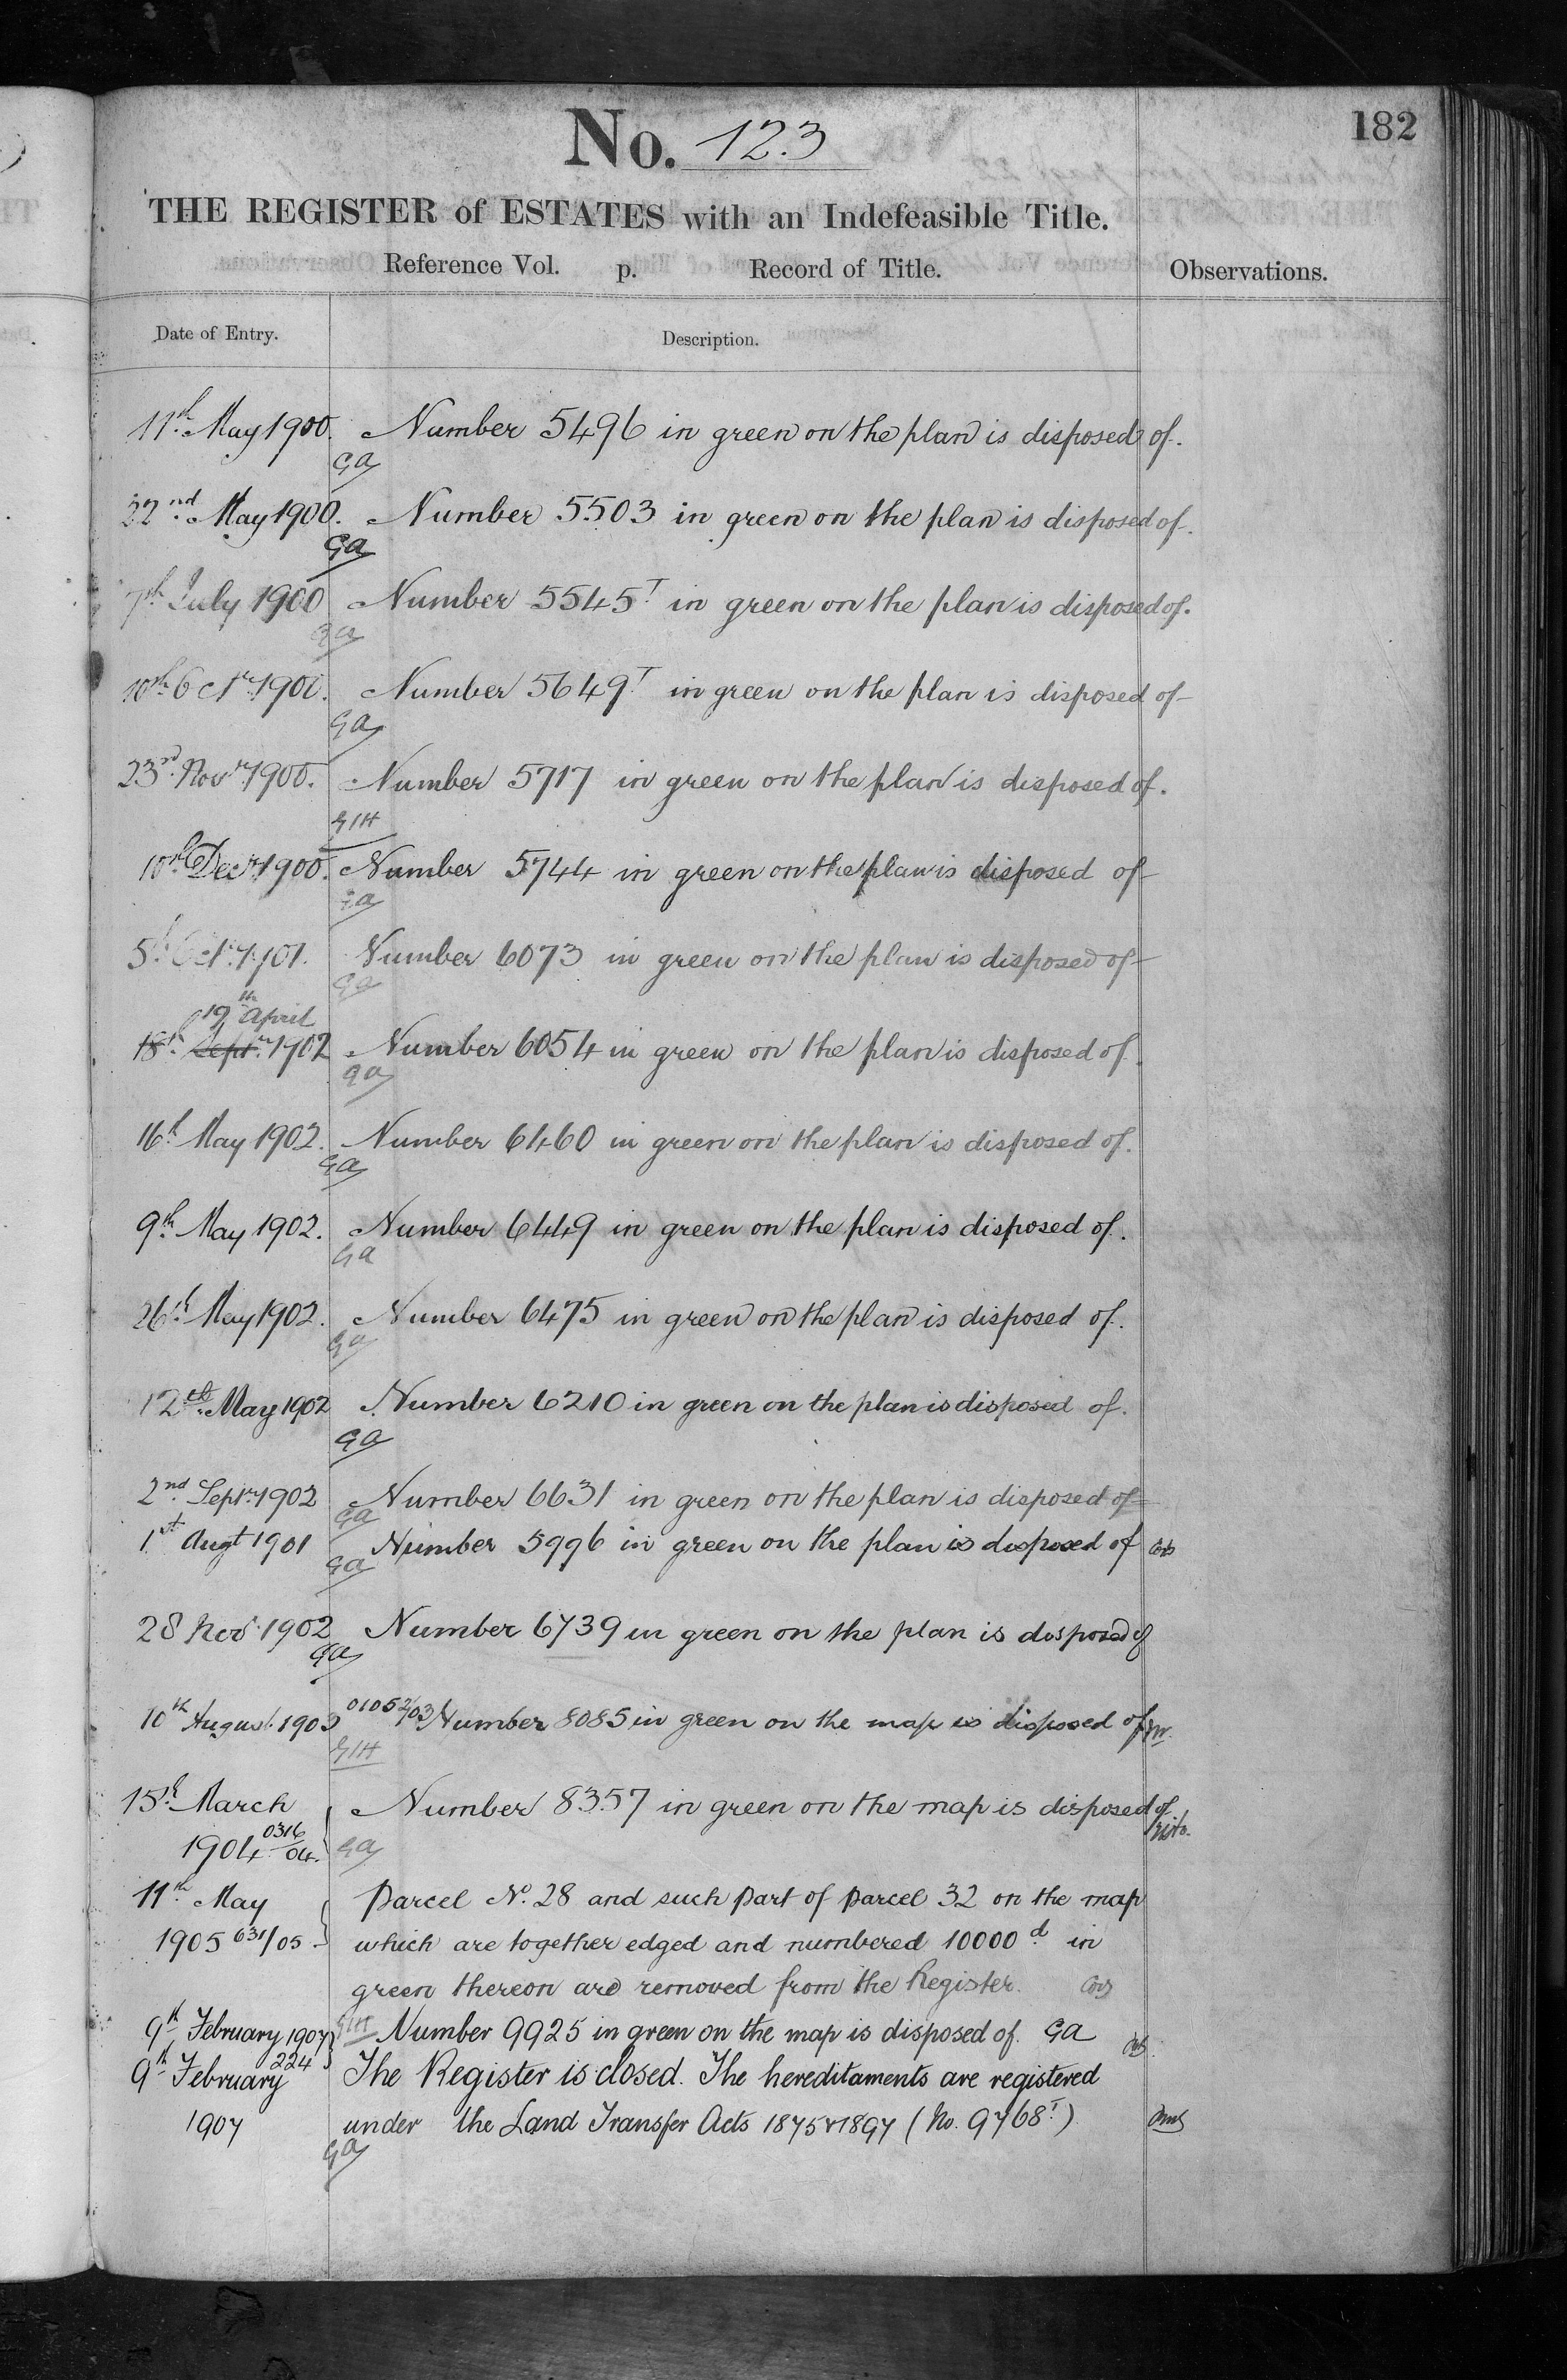 182
No. 123
THE REGISTER of ESTATES with an Indefeasible Title.
Reference Vol. p. Record of Title. Observations.
Date of Entry. Description.
11th May 1900. Number 5496 in green on the plan is disposed of.
GA
22nd May 1900. Number 5503 in green on the plan is disposed of.
GA
7th July 1900 Number 5545T in green on the plan is disposed of.
GA
10th Octr 1900. Number 5649T in green on the plan is disposed of
GA
23rd Novr 1900. Number 5717 in green on the plan is disposed of.
GIH
10th Decr 1900. Number 5744 in green on the plan is disposed of
GA
5th Octr 1901. Number 6073 in green on the plan is disposed of
GA
19th April
18th Septr 1902 Number 6054 in green on the plan is disposed of.
GA
16th May 1902. Number 6460 in green on the plan is disposed of.
GA
9th May 1902. Number 6449 in green on the plan is disposed of.
GA
26th May 1902. Number 6475 in green on the plan is disposed of.
GA
12th May 1902 Number 6210 in green on the plan is disposed of.
GA
2nd Septr 1902 Number 6631 in green on the plan is disposed of
GA
1st Augt 1901 Number 5996 in green on the plan is disposed of
GA
28 Nov 1902 Number 6739 in green on the plan is disposed of
GA
10th August 1903 01052/03 Number 8085 in green on the map is disposed of
GIH
15th March Number 8357 in green on the map is disposed of.
1904 0316/04. GA
11th May Parcel No. 28 and such part of parcel 32 on the map
1905 631/05 which are together edged and numbered 10000d in
green thereon are removed from the Register.
9th February 1907 GIH Number 9925 in green on the map is disposed of. GA
224
9th February The Register is closed. The hereditaments are registered
1907 under the Land Transfer Acts 1875 & 1897 (No. 9768T)
GA